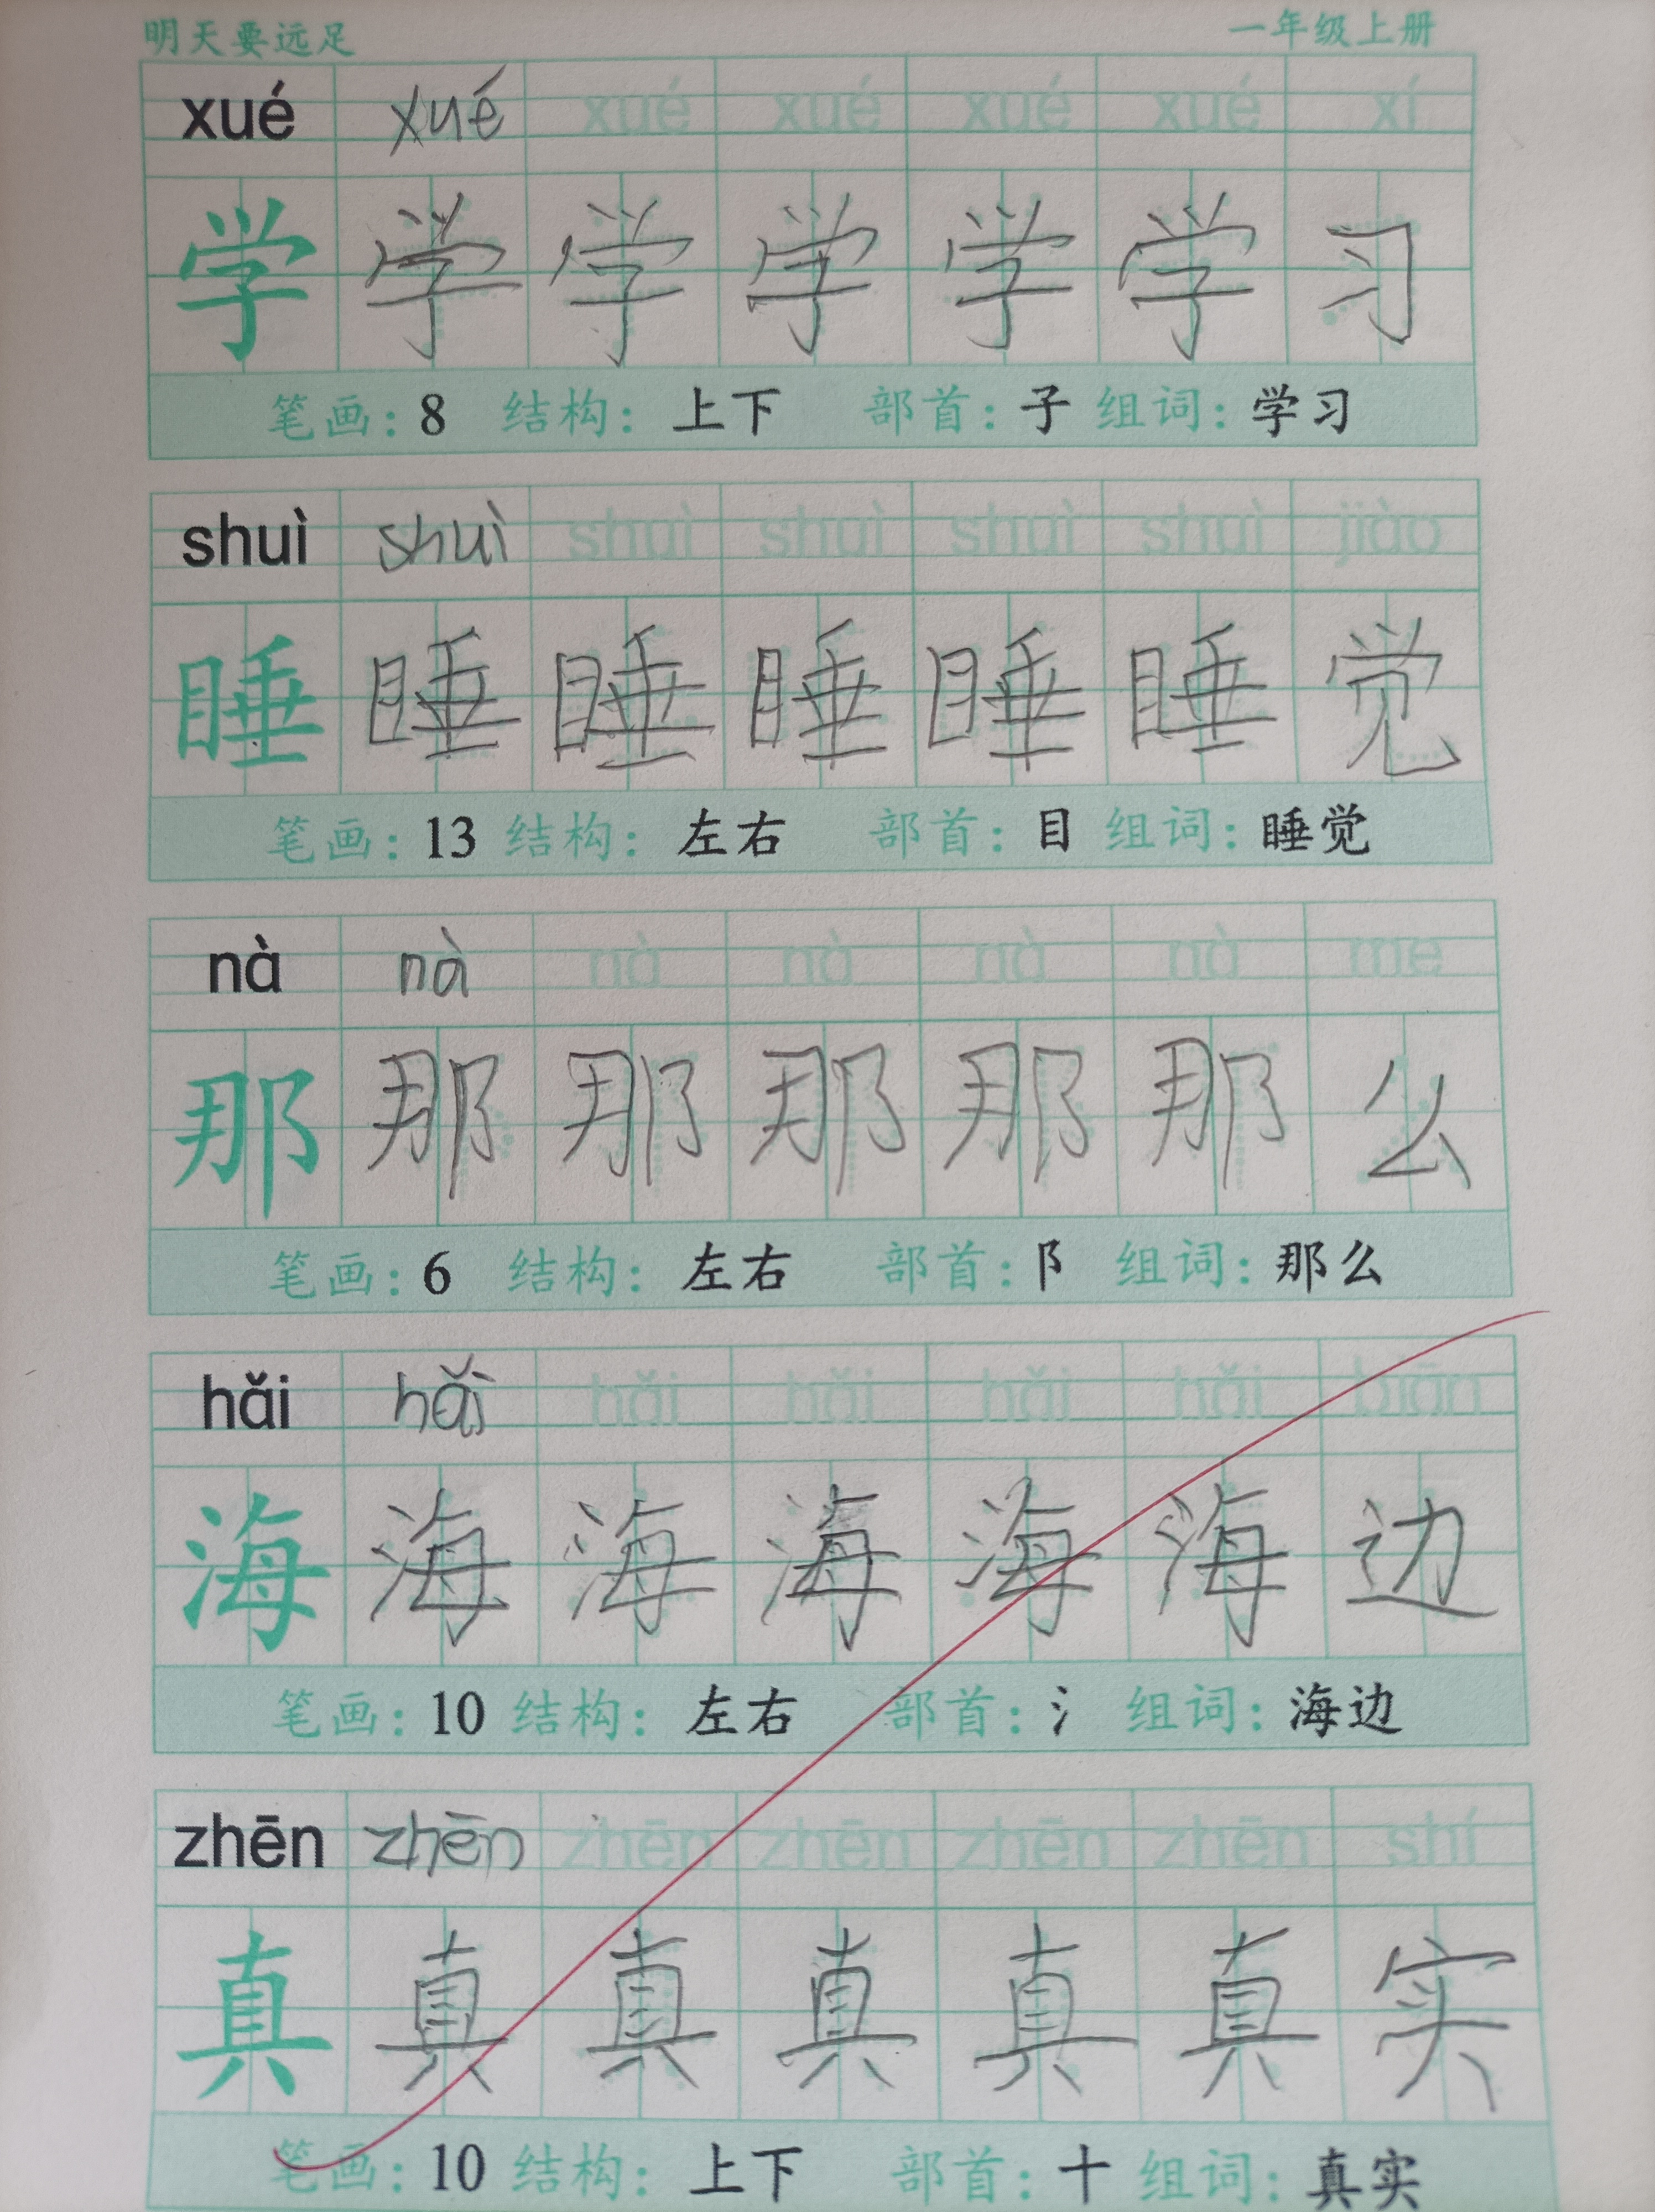 明天要远足 一年级上册
xué xué xué xué xué xué xí
学 学 学 学 学 学 习
笔画：8 结构：上下 部首：子 组词：学习
shuì shuì shuì shuì shuì shuì jiào
睡 睡 睡 睡 睡 睡 觉
笔画：13 结构：左右 部首：目 组词：睡觉
nà nà nà nà nà nà me
那 那 那 那 那 那 么
笔画：6 结构：左右 部首：阝 组词：那么
hǎi hǎi hǎi hǎi hǎi hǎi biān
海 海 海 海 海 海 边
笔画：10 结构：左右 部首：氵 组词：海边
zhēn zhēn zhēn zhēn zhēn zhēn shí
真 真 真 真 真 真 实
笔画：10 结构：上下 部首：十 组词：真实